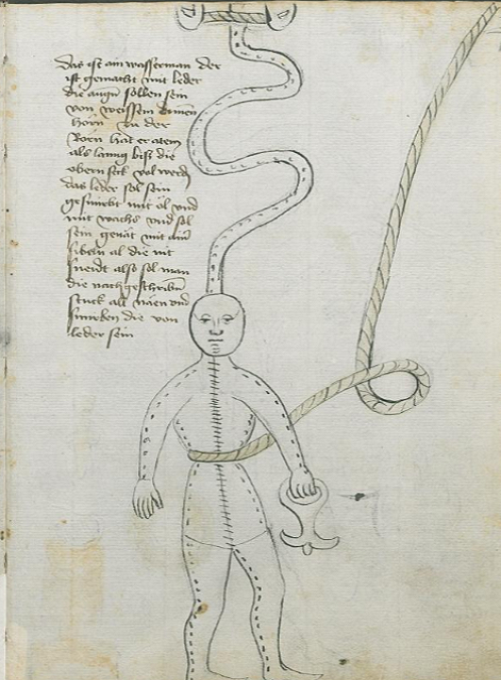 das ist ain wasserman der
ist gemacht mit leder
die augn sollen sein
von weissem dinnen
horn zu der
Rorn hat er atem
als lanng bisz die
obern seck vol werdn
das leder sol sein
gesmirbt mit öl vnd
mit wachs vnd sol
sein genät mit ainer
al die nit
also sol man
die nachgeschribn
stuck all näen vnd
smirben die von
leder sein